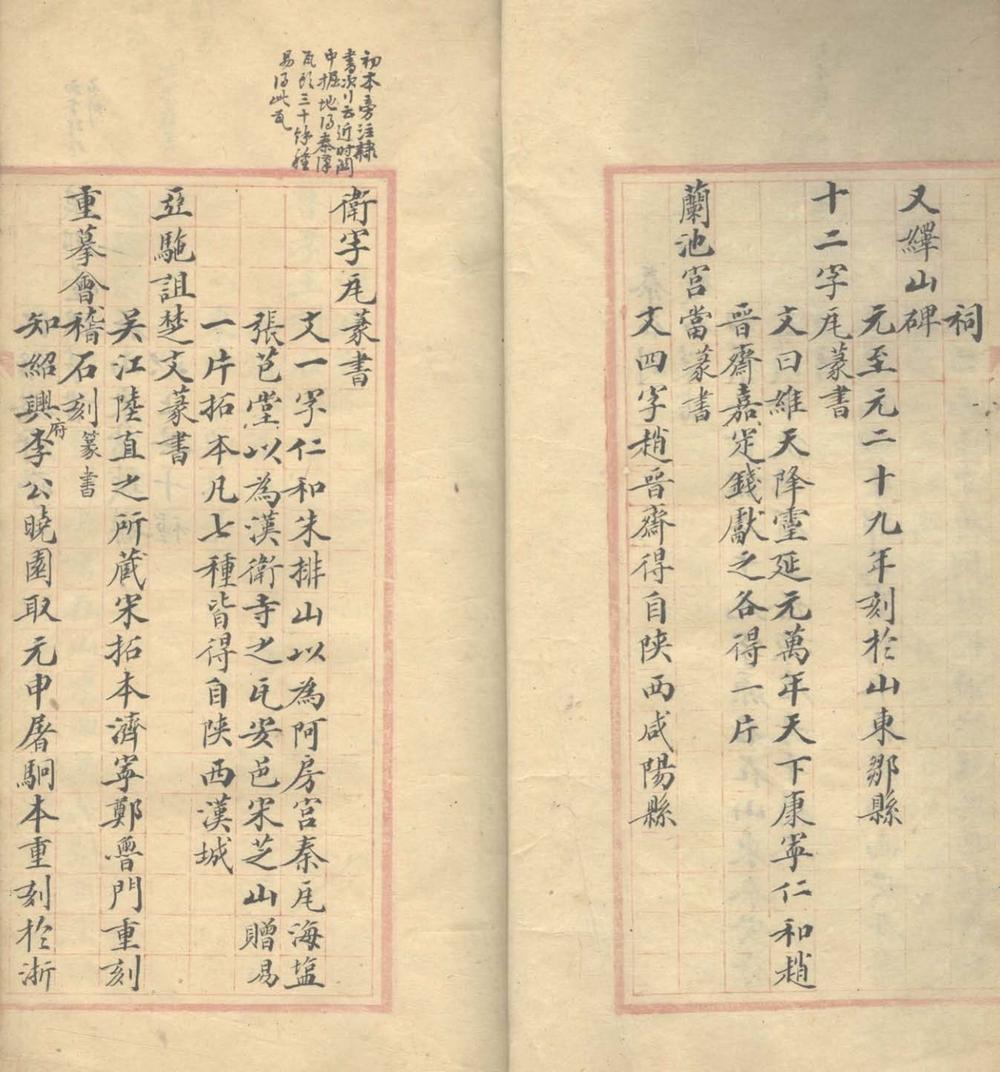 祠
又繹山碑
元至元二十九年刻於山東鄒縣
十二字瓦篆書
文曰維天降靈延元萬年天下康寧仁和趙
晉齋嘉定錢獻之各得一片
蘭池宮當篆書
文四字趙晉齋得自陝西咸陽縣
初本旁注隸
書次行云近時関
中掘地得秦漢
瓦於三十餘種
易得此瓦
衛字瓦篆書
文一字仁和朱排山以為阿房宮秦瓦海塩
張芑堂以為漢衛寺之瓦安邑宋芝山贈易
一片拓本凡七種皆得自陝西漢城
亞駞詛楚文篆書
吳江陸直之所藏宋拓本濟寧鄭魯門重刻
重摹會稽石刻篆書
知紹興府李公曉園取元申屠駉本重刻於浙